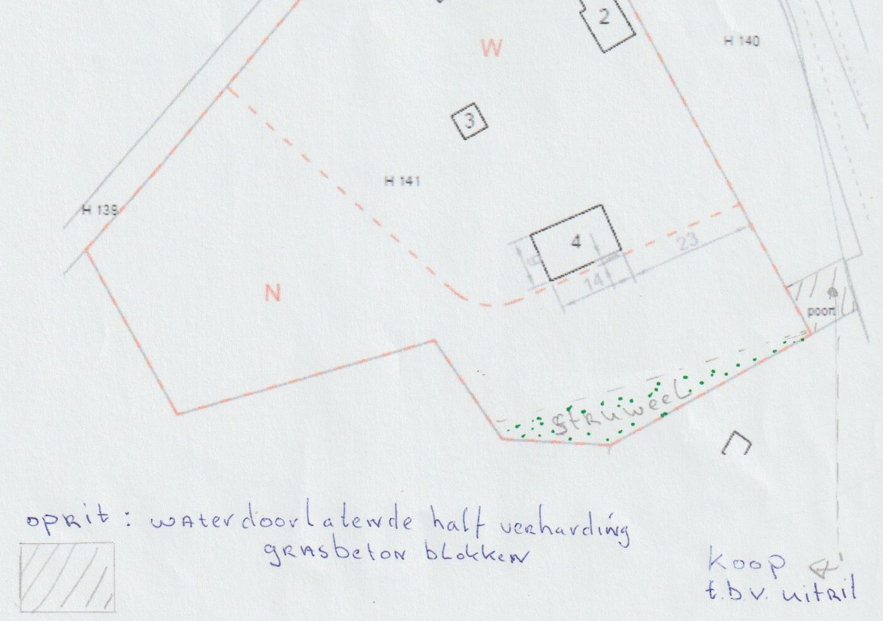 2
H 140
W
3
H 141
H 138
4
23
6
14
N
poort
struweel
oprit : waterdoorlatende half verharding
grasbeton blokken
koop
t.b.v. uitrit